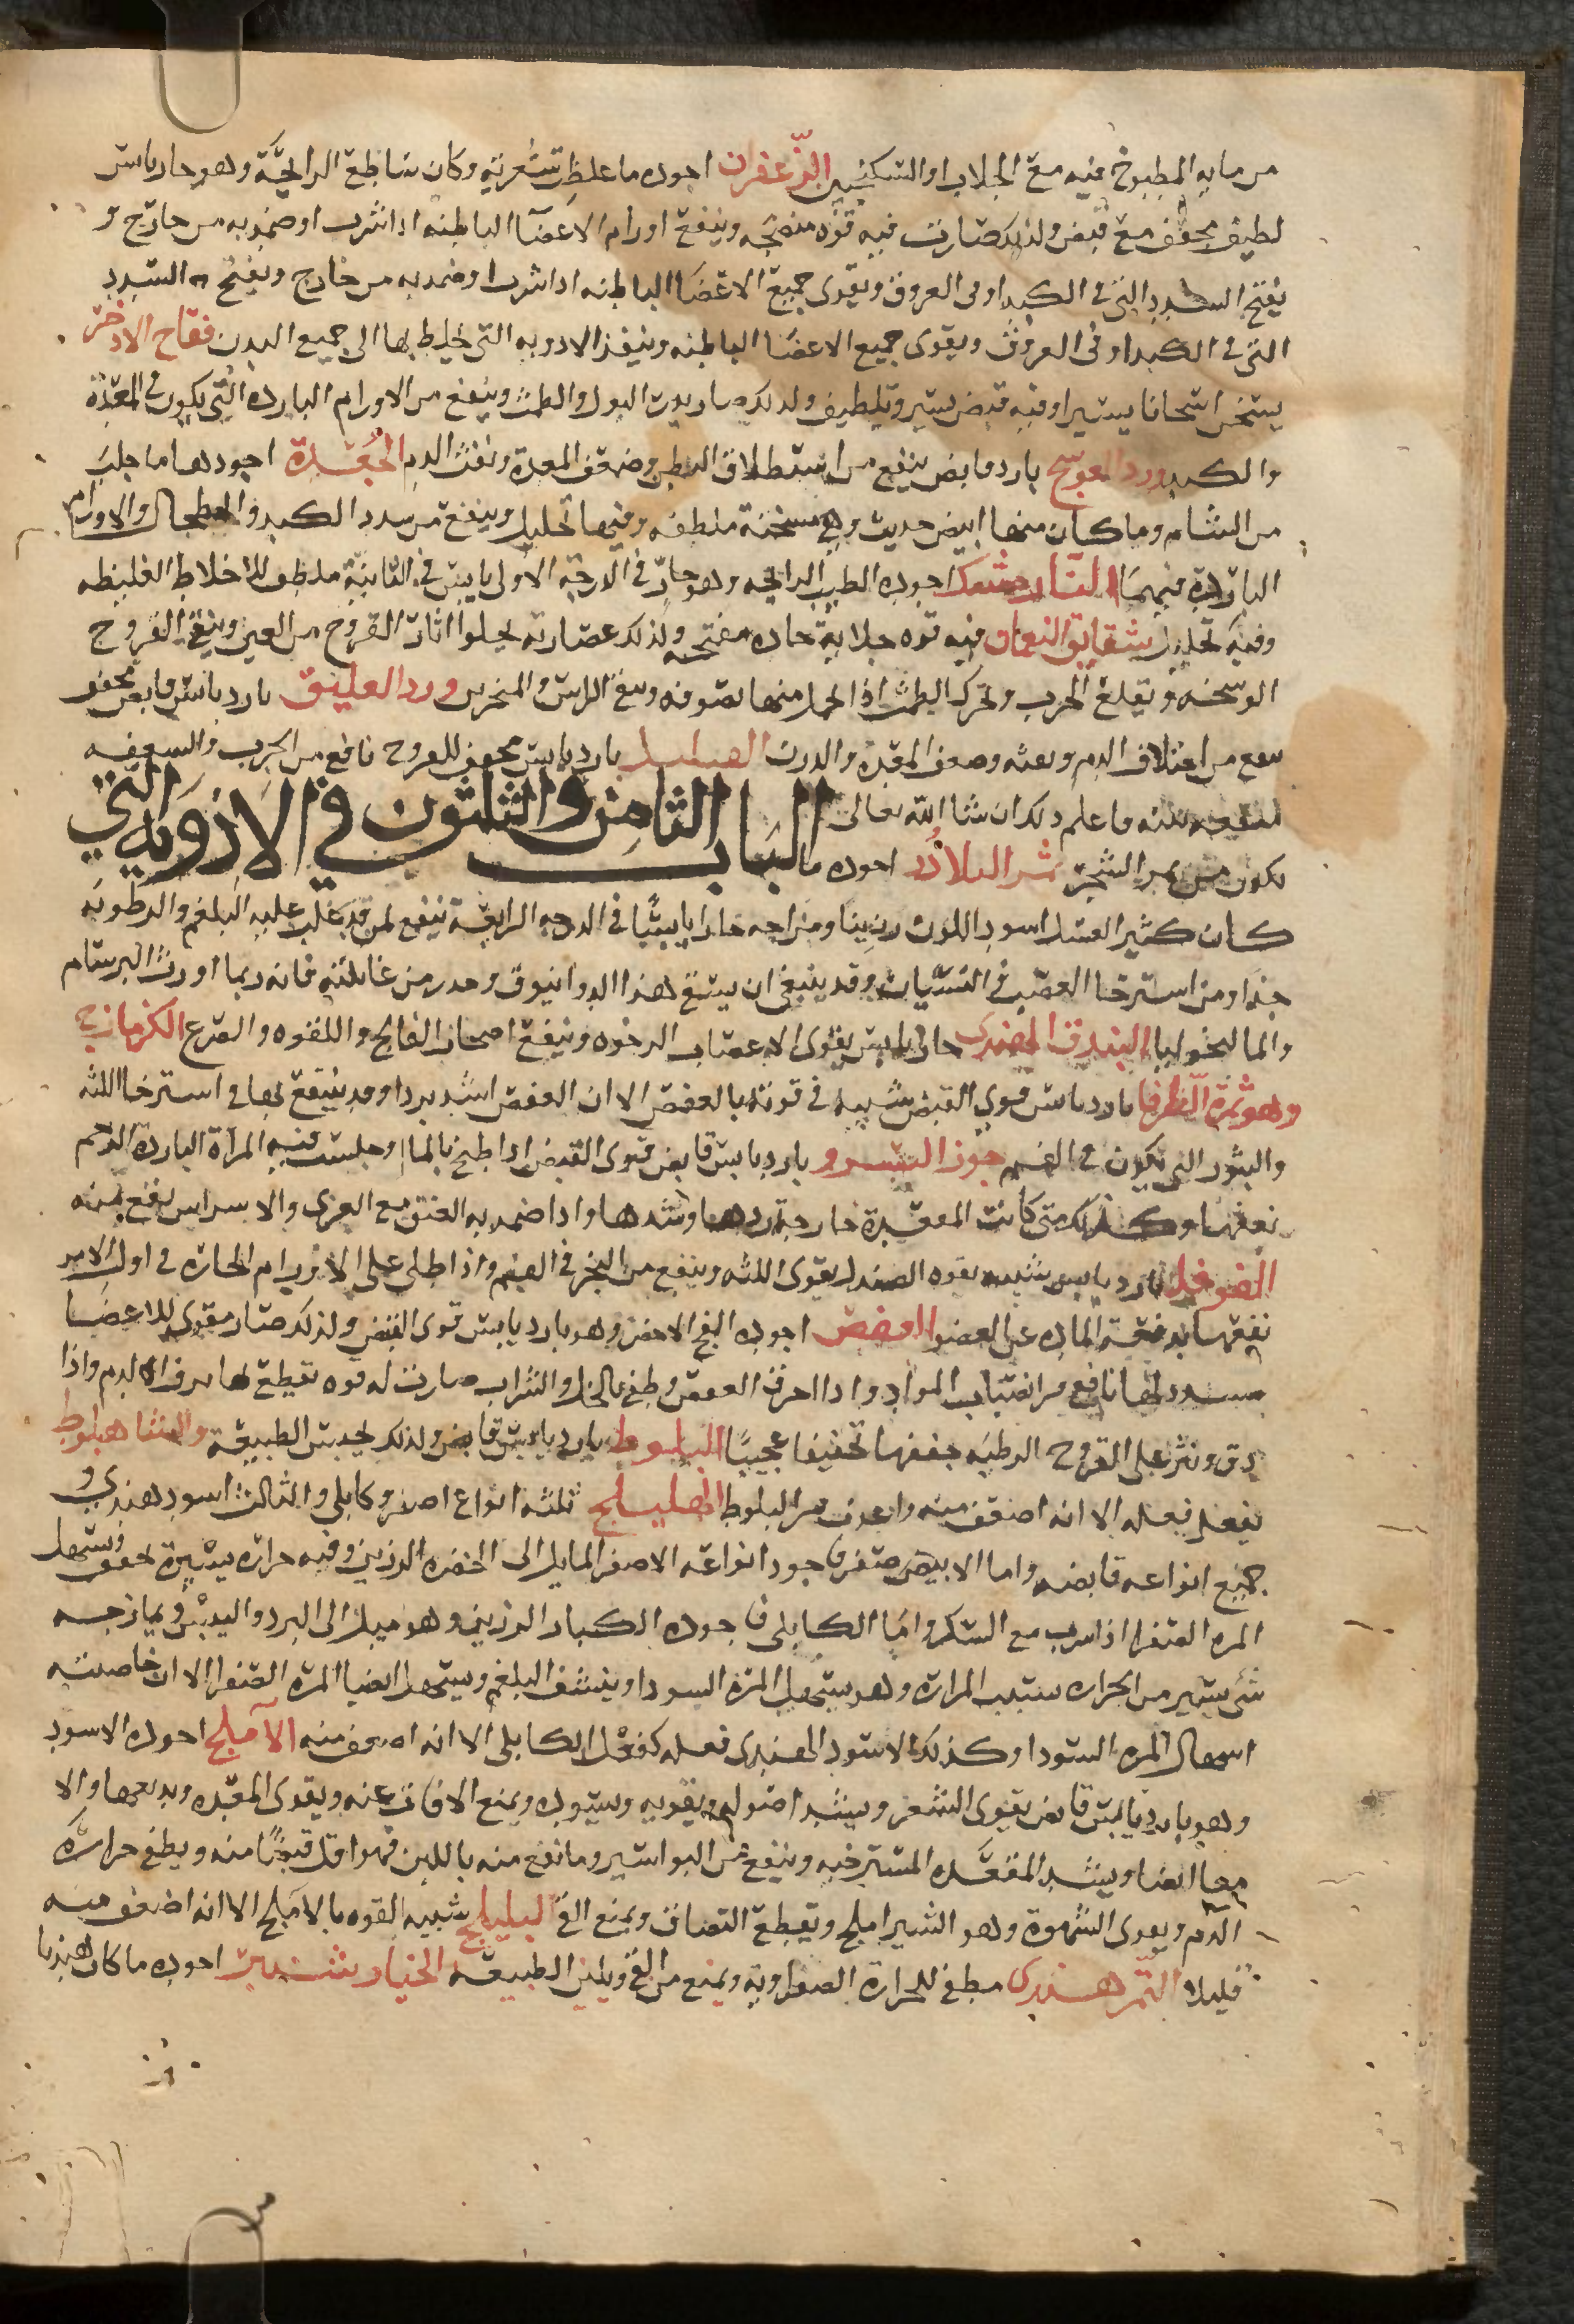 من مايه المطبوخ فيه مع الجلاب او السكنجبين الزعفران اجوده ما غلظت شعرته وكان ساطع الرايحة وهو حار يابس
لطيف مجفف مع قبض ولذلك صارت فيه قوه منضجه وينفع اورام الاعضا الباطنه اذا شرب او ضمد به من خارج و
يفتح السدد التي في الكبد او في العروق ويقوى جميع الاعضا الباطنه اذا شرب او ضمد به من خارج ويفتح السدد
التي في الكبد او في العروق ويقوى جميع الاعضا الباطنه وينفذ الادويه التي خلط بها الى جميع البدن فقاح الادخر
يسخن اسخانا يسيرا وفيه قبض يسير وتلطيف ولذلك صار يدر البول والطمث وينفع من الاورام البارده التي يكون في المعدة
والكبد ورد العوسج بارد قابض ينفع من استطلاق البطن وضعف المعدة ونفث الدم الجعدة اجودها ما جلب
من الشام وما كان منها ابيض حديث وهي مسخنة ملطفه وفيها تحليل وينفع من سدد الكبد والطحال والاورام
الباردة فيهما اجوده الطيب الرايحه وهو حار في الدرجة الاولى يابس في الثانية ملطف للاخلاط الغليظه
وفيه تحليل شقايق النعمان فيه قوه جلاية حاده مفتحه ولذلك عصارته يجلوا اثار القروح من العين وينقي القروح
الوسخه ويقلع الجرب ويحرك الطمث اذا احتمل منها بصوفه وينقي الراس والمنخرين ورد العليق بارد يابس قابض مجفف
ينفع من اختلاف الدم ونفثه وضعف المعدة والدرب بارد يابس مجفف للقروح نافع من الجرب والسعفه
فاعلم ذلك ان شا الله تعالى الباب الثامن والثلثون في الادويه التي
يكون من ثمر الشجر ثمر البلادر اجوده ما
كان كثير العسل اسود اللون رزينا ومزاجه حارا يابسا في الدرجه الرابعة ينفع لمن قد غلب عليه البلغم والرطوبه
جدا ومن استرخا العصب في النسيان وقد ينبغي ان يستقي هذا الدوا بتوق وحدر من غايلته فانه ربما اورث البرسام
والمالنخوليا البندق الهندى حار يابس يقوى الاعصاب الرخوه وينفع اصحاب الفالج واللقوه والصرع الكزمازج
وهو ثمرة الطرفا بارد يابس قوي القبض شبيه في قوته بالعفص الا ان العفص اشد بردا وقد ينتفع بها في استرخا اللثه
والبثور التي تكون في الفم جوز السرو بارد يابس قابض قوى القبض اذا طبخ بالما وجلست فيه المرأة الباردة الرحم
نفعها وكذلك متى كانت المقعدة خارجة ردها وشدها واذا ضمد به الفتق مع الغرى والاسراس نفع منه
الفوفل بارد يابس شبيه بقوه الصندل يقوى اللثه وينفع من البخر في الفم واذا طلي على الاورام الحاره في اول الامر
نفعها بدفعه الماده عن العضو العفص اجوده الفج الاخضر وهو بارد يابس قوى القبض ولذلك صار مقوى للاعضا
مسدد لها نافع من انصباب المواد واذا احرق العفص وطفي بالخل والشراب صارت له قوه تقطع بها نزف الدم واذا
دق ونثر على القروح الرطبه جففها تجفيفا عجيبا البلوط بارد يابس قابض ولذلك يحبس الطبيعة والشاهبلوط
يفعل فعله الا انه اضعف منه واعدل من البلوط الهليلج ثلثه انواع اصفر وكابلي والثالث اسود هندي و
جميع انواعه قابضه واما الاصفر فاجود انواعه الاصفر المايل الى الخضره الرزين وفيه حراره يسيرة مجفف ويسهل
المره الصفرا اذا شرب مع السكر واما الكابلى فاجوده الكبار الرزين وهو ميل الى البرد واليبس ويمازجه
شي يسير من الحراره بسبب المراره وهو يسهل المرة السودا وينشف البلغم ويسهل ايضا المرة الصفرا الا ان خاصيته
اسهال المره السودا وكذلك الاسود الهندى فعله كفعل الكابلى الا انه اضعف منه الاملج اجوده الاسود
وهو بارد يابس قابض يقوى الشعر ويشد اصوله ويقويه ويسوده ويمنع الافات عنه ويقوى المعده ويدبغها والا
معا ايضا ويشد المقعده المسترخيه وينفع من البواسير وما نقع منه باللبن فهو اقل قبضا منه ويطفي حرارة
الدم ويقوى الشهوة وهو الشير املج ويقطع البصاق ويمنع القي البليلج شبيه القوه بالاملج الا انه اضعف منه
قليلا التمر هندى مطفي للحرارة الصفراوية ويمنع من القي ويلين الطبيعه الخيار شنبر اجوده ما كان هنديا